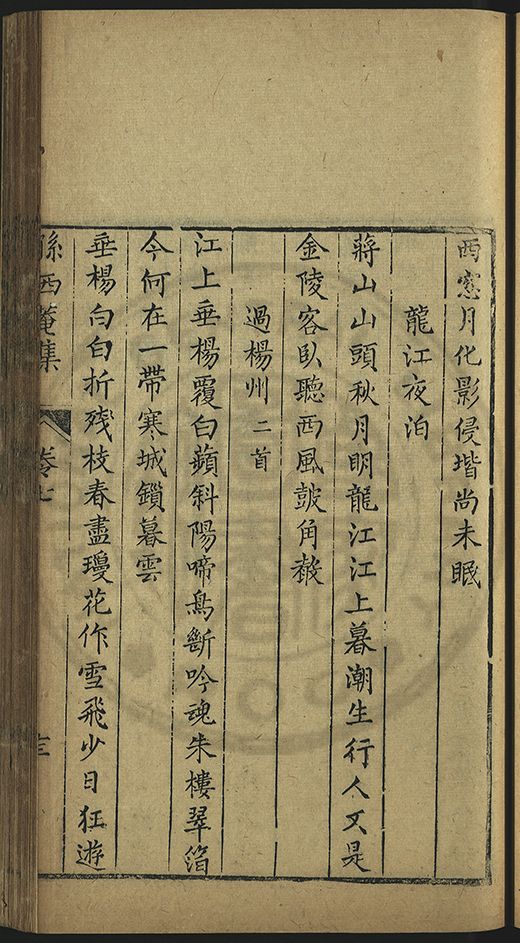 西窓月化影侵堦尚未眠
龍江夜泊
蔣山山頭秋月明龍江江上暮潮生行人又是
金陵客臥聽西風鼓角聲
過楊州二首
江上垂楊覆白蘋斜陽啼鳥斷吟魂朱樓翠箔
今何在一帶寒城鎖暮雲
垂楊向白折殘枝春盡瓊花作雪飛少日狂遊
孫西菴集 卷七